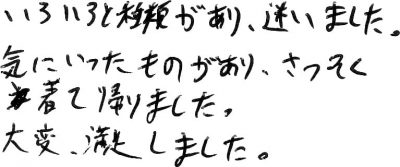 いろいろと種類があり、迷いました。
気にいったものがあり、さっそく
着て帰りました。
大変、満足しました。